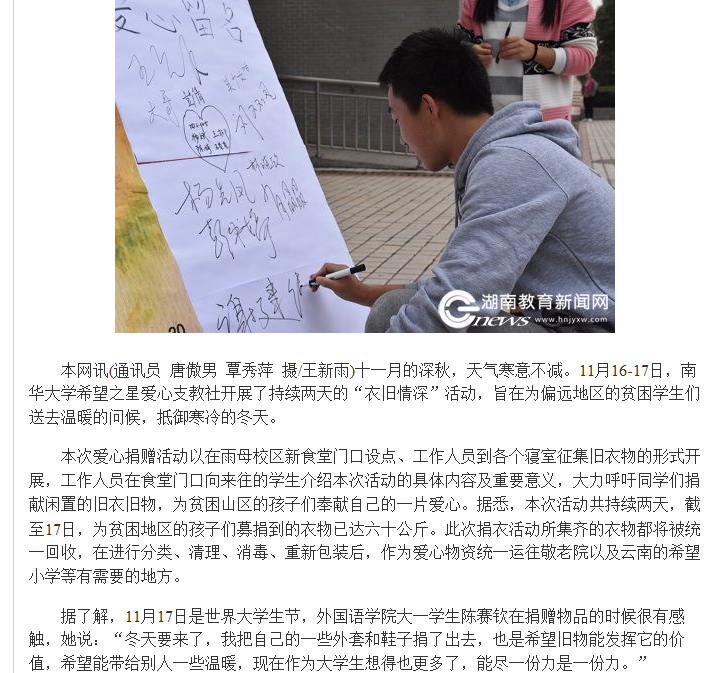 爱心留名
湖南教育新闻网
news www.hnjyxw.com
本网讯(通讯员 唐傲男 覃秀萍 摄/王新雨)十一月的深秋，天气寒意不减。11月16-17日，南
华大学希望之星爱心支教社开展了持续两天的“衣旧情深”活动，旨在为偏远地区的贫困学生们
送去温暖的问候，抵御寒冷的冬天。
本次爱心捐赠活动以在雨母校区新食堂门口设点、工作人员到各个寝室征集旧衣物的形式开
展，工作人员在食堂门口向来往的学生介绍本次活动的具体内容及重要意义，大力呼吁同学们捐
献闲置的旧衣旧物，为贫困山区的孩子们奉献自己的一片爱心。据悉，本次活动共持续两天，截
至17日，为贫困地区的孩子们募捐到的衣物已达六十公斤。此次捐衣活动所集齐的衣物都将被统
一回收，在进行分类、清理、消毒、重新包装后，作为爱心物资统一运往敬老院以及云南的希望
小学等有需要的地方。
据了解，11月17日是世界大学生节，外国语学院大一学生陈赛钦在捐赠物品的时候很有感
触，她说：“冬天要来了，我把自己的一些外套和鞋子捐了出去，也是希望旧物能发挥它的价
值，希望能带给别人一些温暖，现在作为大学生想得也更多了，能尽一份力是一份力。”